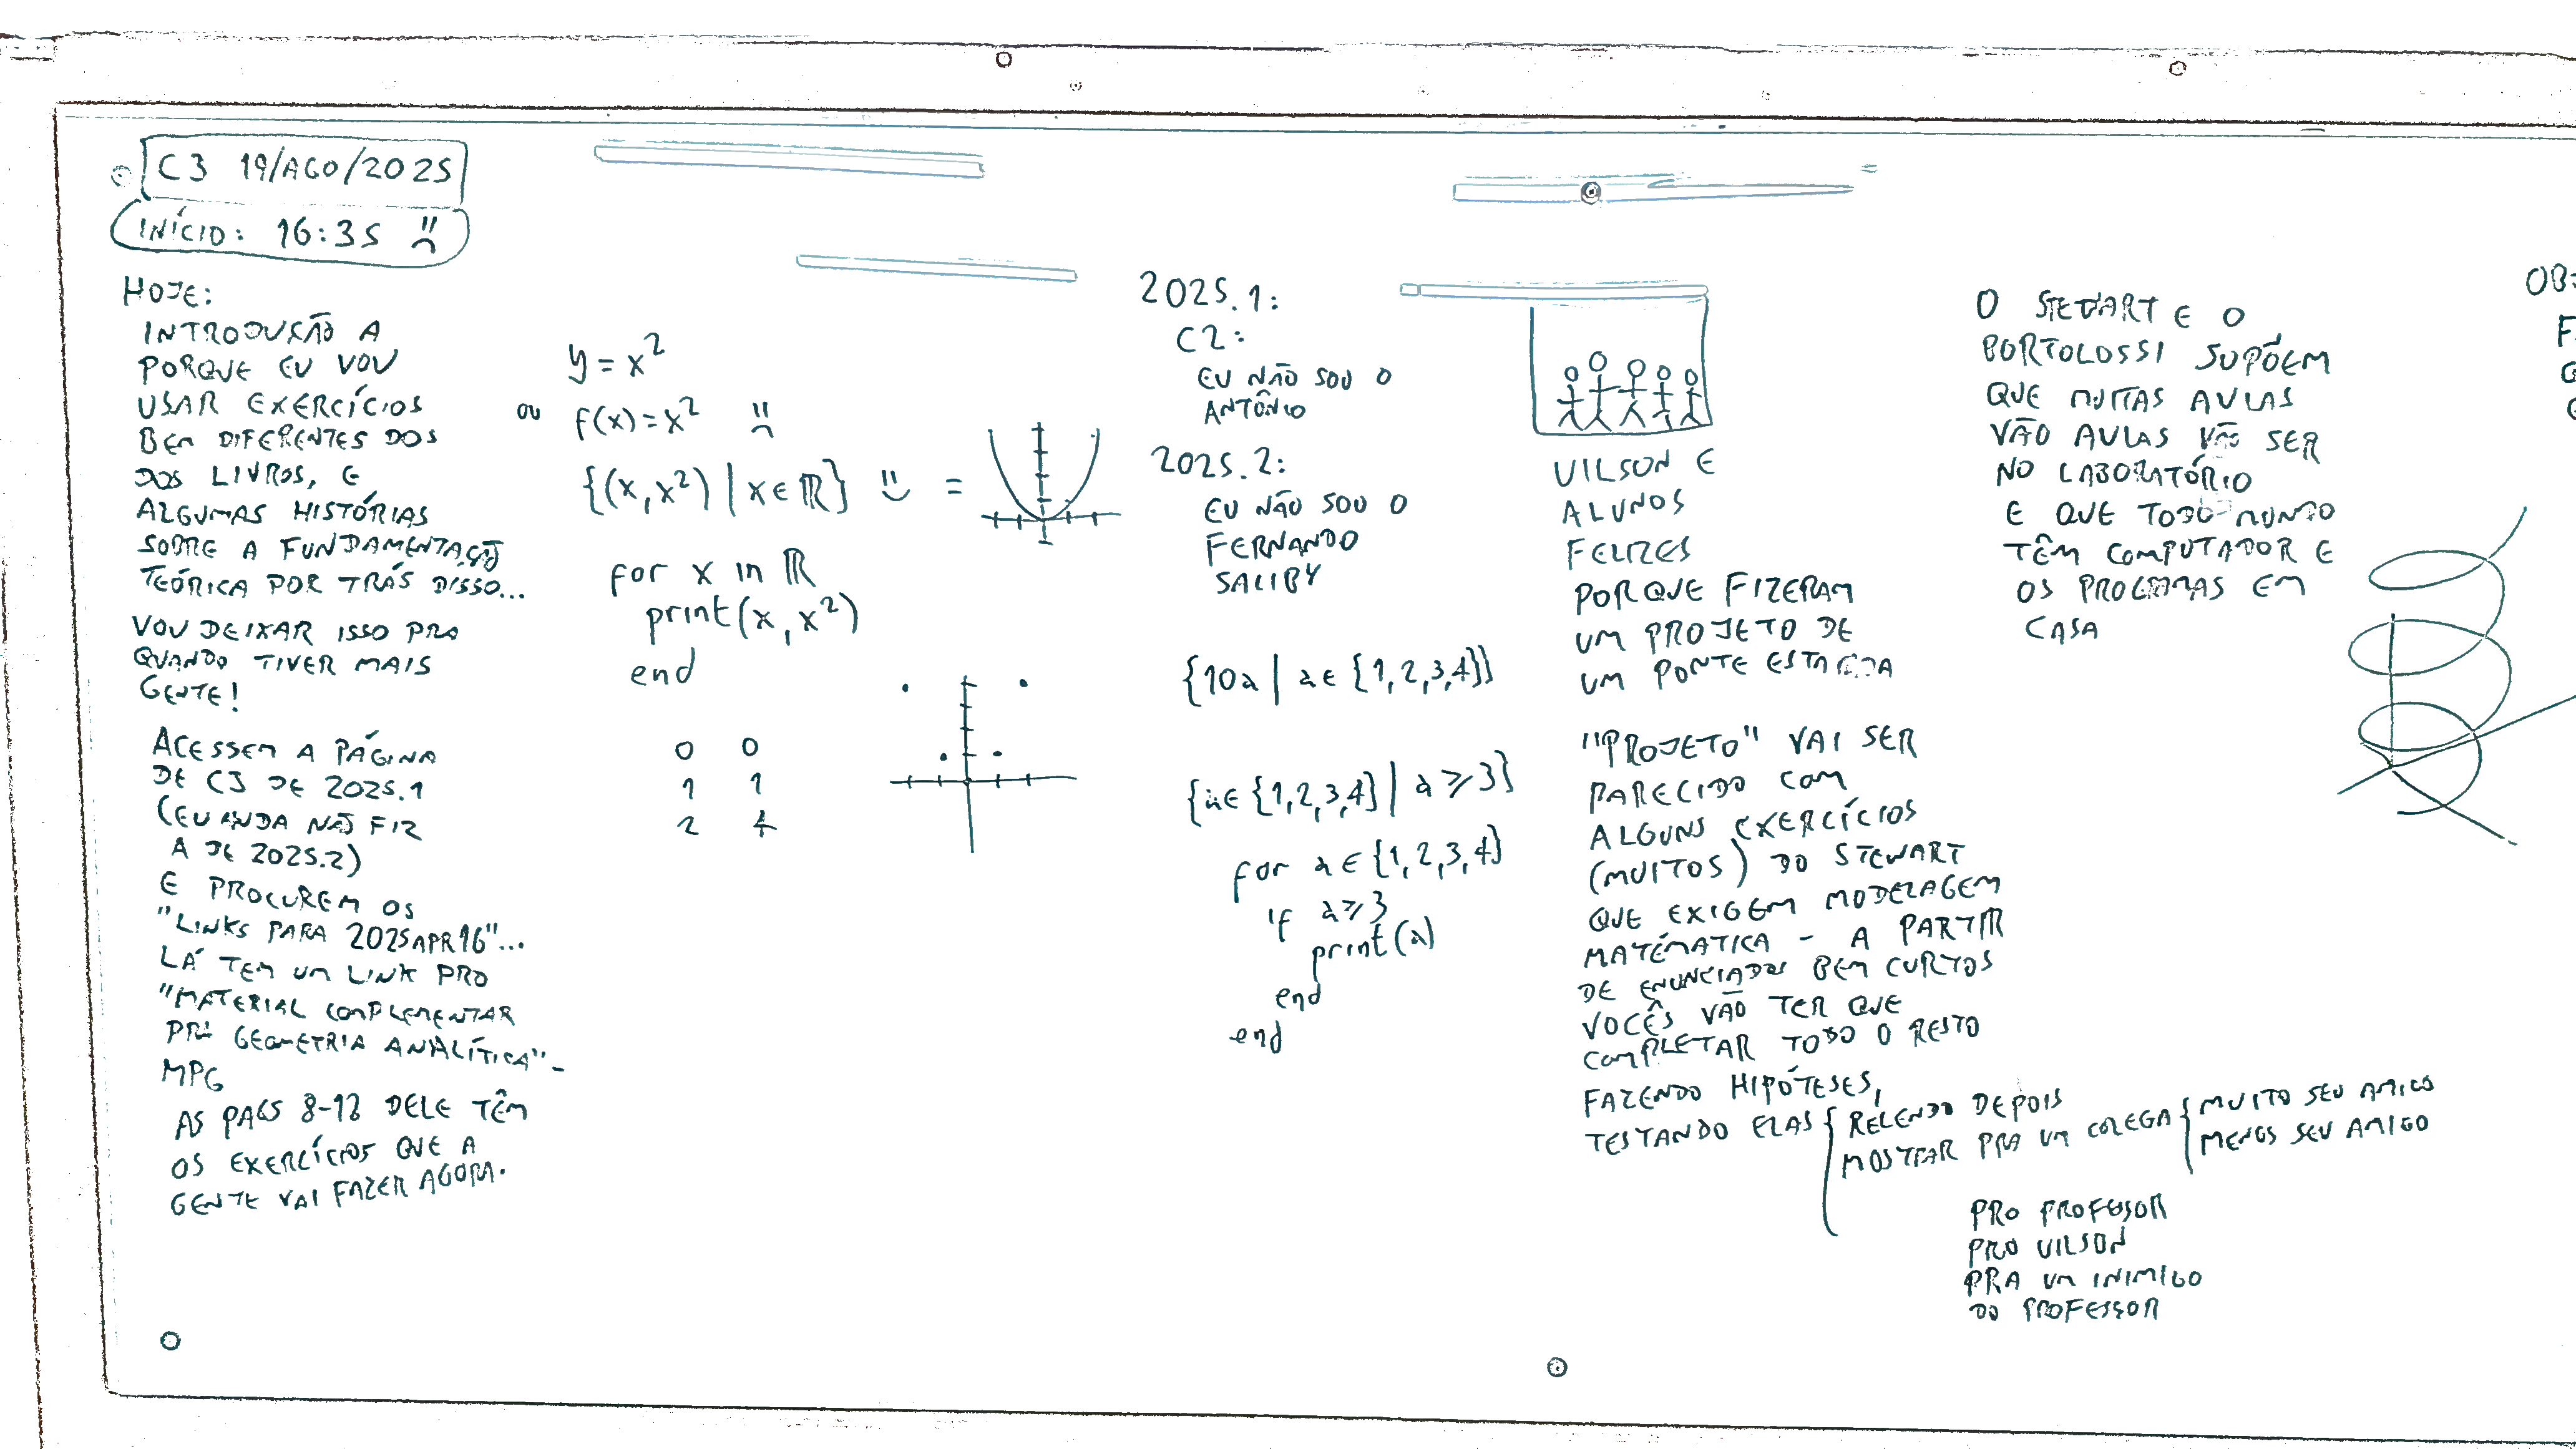 C3 19/AGO/2025
INÍCIO: 16:35
HOJE:
INTRODUÇÃO A
PORQUE EU VOU
USAR EXERCÍCIOS
BEM DIFERENTES DOS
DOS LIVROS, E
ALGUMAS HISTÓRIAS
SOBRE A FUNDAMENTAÇÃO
TEÓRICA POR TRÁS DISSO...
VOU DEIXAR ISSO PRA
QUANDO TIVER MAIS
GENTE!
ACESSEM A PÁGINA
DE C3 DE 2025.1
(EU AINDA NÃO FIZ
A DE 2025.2)
E PROCUREM OS
"LINKS PARA 2025APR16"...
LÁ TEM UM LINK PRO
"MATERIAL COMPLEMENTAR
PRA GEOMETRIA ANALÍTICA" -
MPG
AS PAGS 8-12 DELE TÊM
OS EXERCÍCIOS QUE A
GENTE VAI FAZER AGORA.
y = x²
ou f(x) = x²
{(x, x²) | x ∈ ℝ} =
for x in ℝ
print(x, x²)
end
0 0
1 1
2 4
2025.1:
C2:
EU NÃO SOU O
ANTÔNIO
2025.2:
EU NÃO SOU O
FERNANDO
SALIBY
{10a | a ∈ {1,2,3,4}}
{a ∈ {1,2,3,4} | a ≥ 3}
for a ∈ {1,2,3,4}
if a ≥ 3
print(a)
end
end
VILSON E
ALUNOS
FELIZES
PORQUE FIZERAM
UM PROJETO DE
UM PONTE
"PROJETO" VAI SER
PARECIDO COM
ALGUNS EXERCÍCIOS
(MUITOS) DO STEWART
QUE EXIGEM MODELAGEM
MATEMÁTICA - A PARTIR
DE ENUNCIADOS BEM CURTOS
VOCÊS VÃO TER QUE
COMPLETAR TODO O RESTO
FAZENDO HIPÓTESES,
TESTANDO ELAS { RELENDO DEPOIS
MOSTRAR PRA UM COLEGA { MUITO SEU AMIGO
MENOS SEU AMIGO
PRO PROFESSOR
PRO VILSON
PRA UM INIMIGO
DO PROFESSOR
O STEWART E O
BORTOLOSSI SUPÕEM
QUE MUITAS AULAS
VÃO AULAS VÃO SER
NO LABORATÓRIO
E QUE TODO MUNDO
TÊM COMPUTADOR E
OS PROGRAMAS EM
CASA